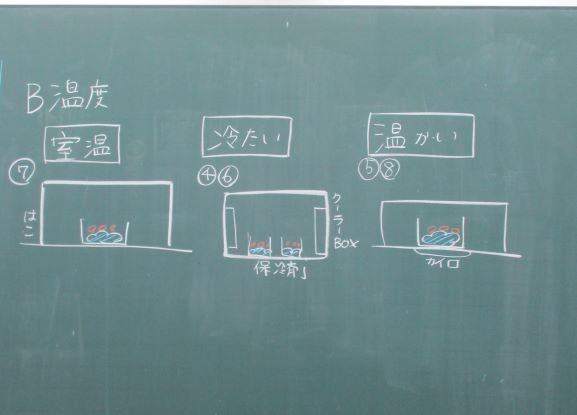 B 温度
室温
冷たい
温かい
⑦
④⑥
⑤⑧
はこ
クーラーBOX
保冷剤
カイロ